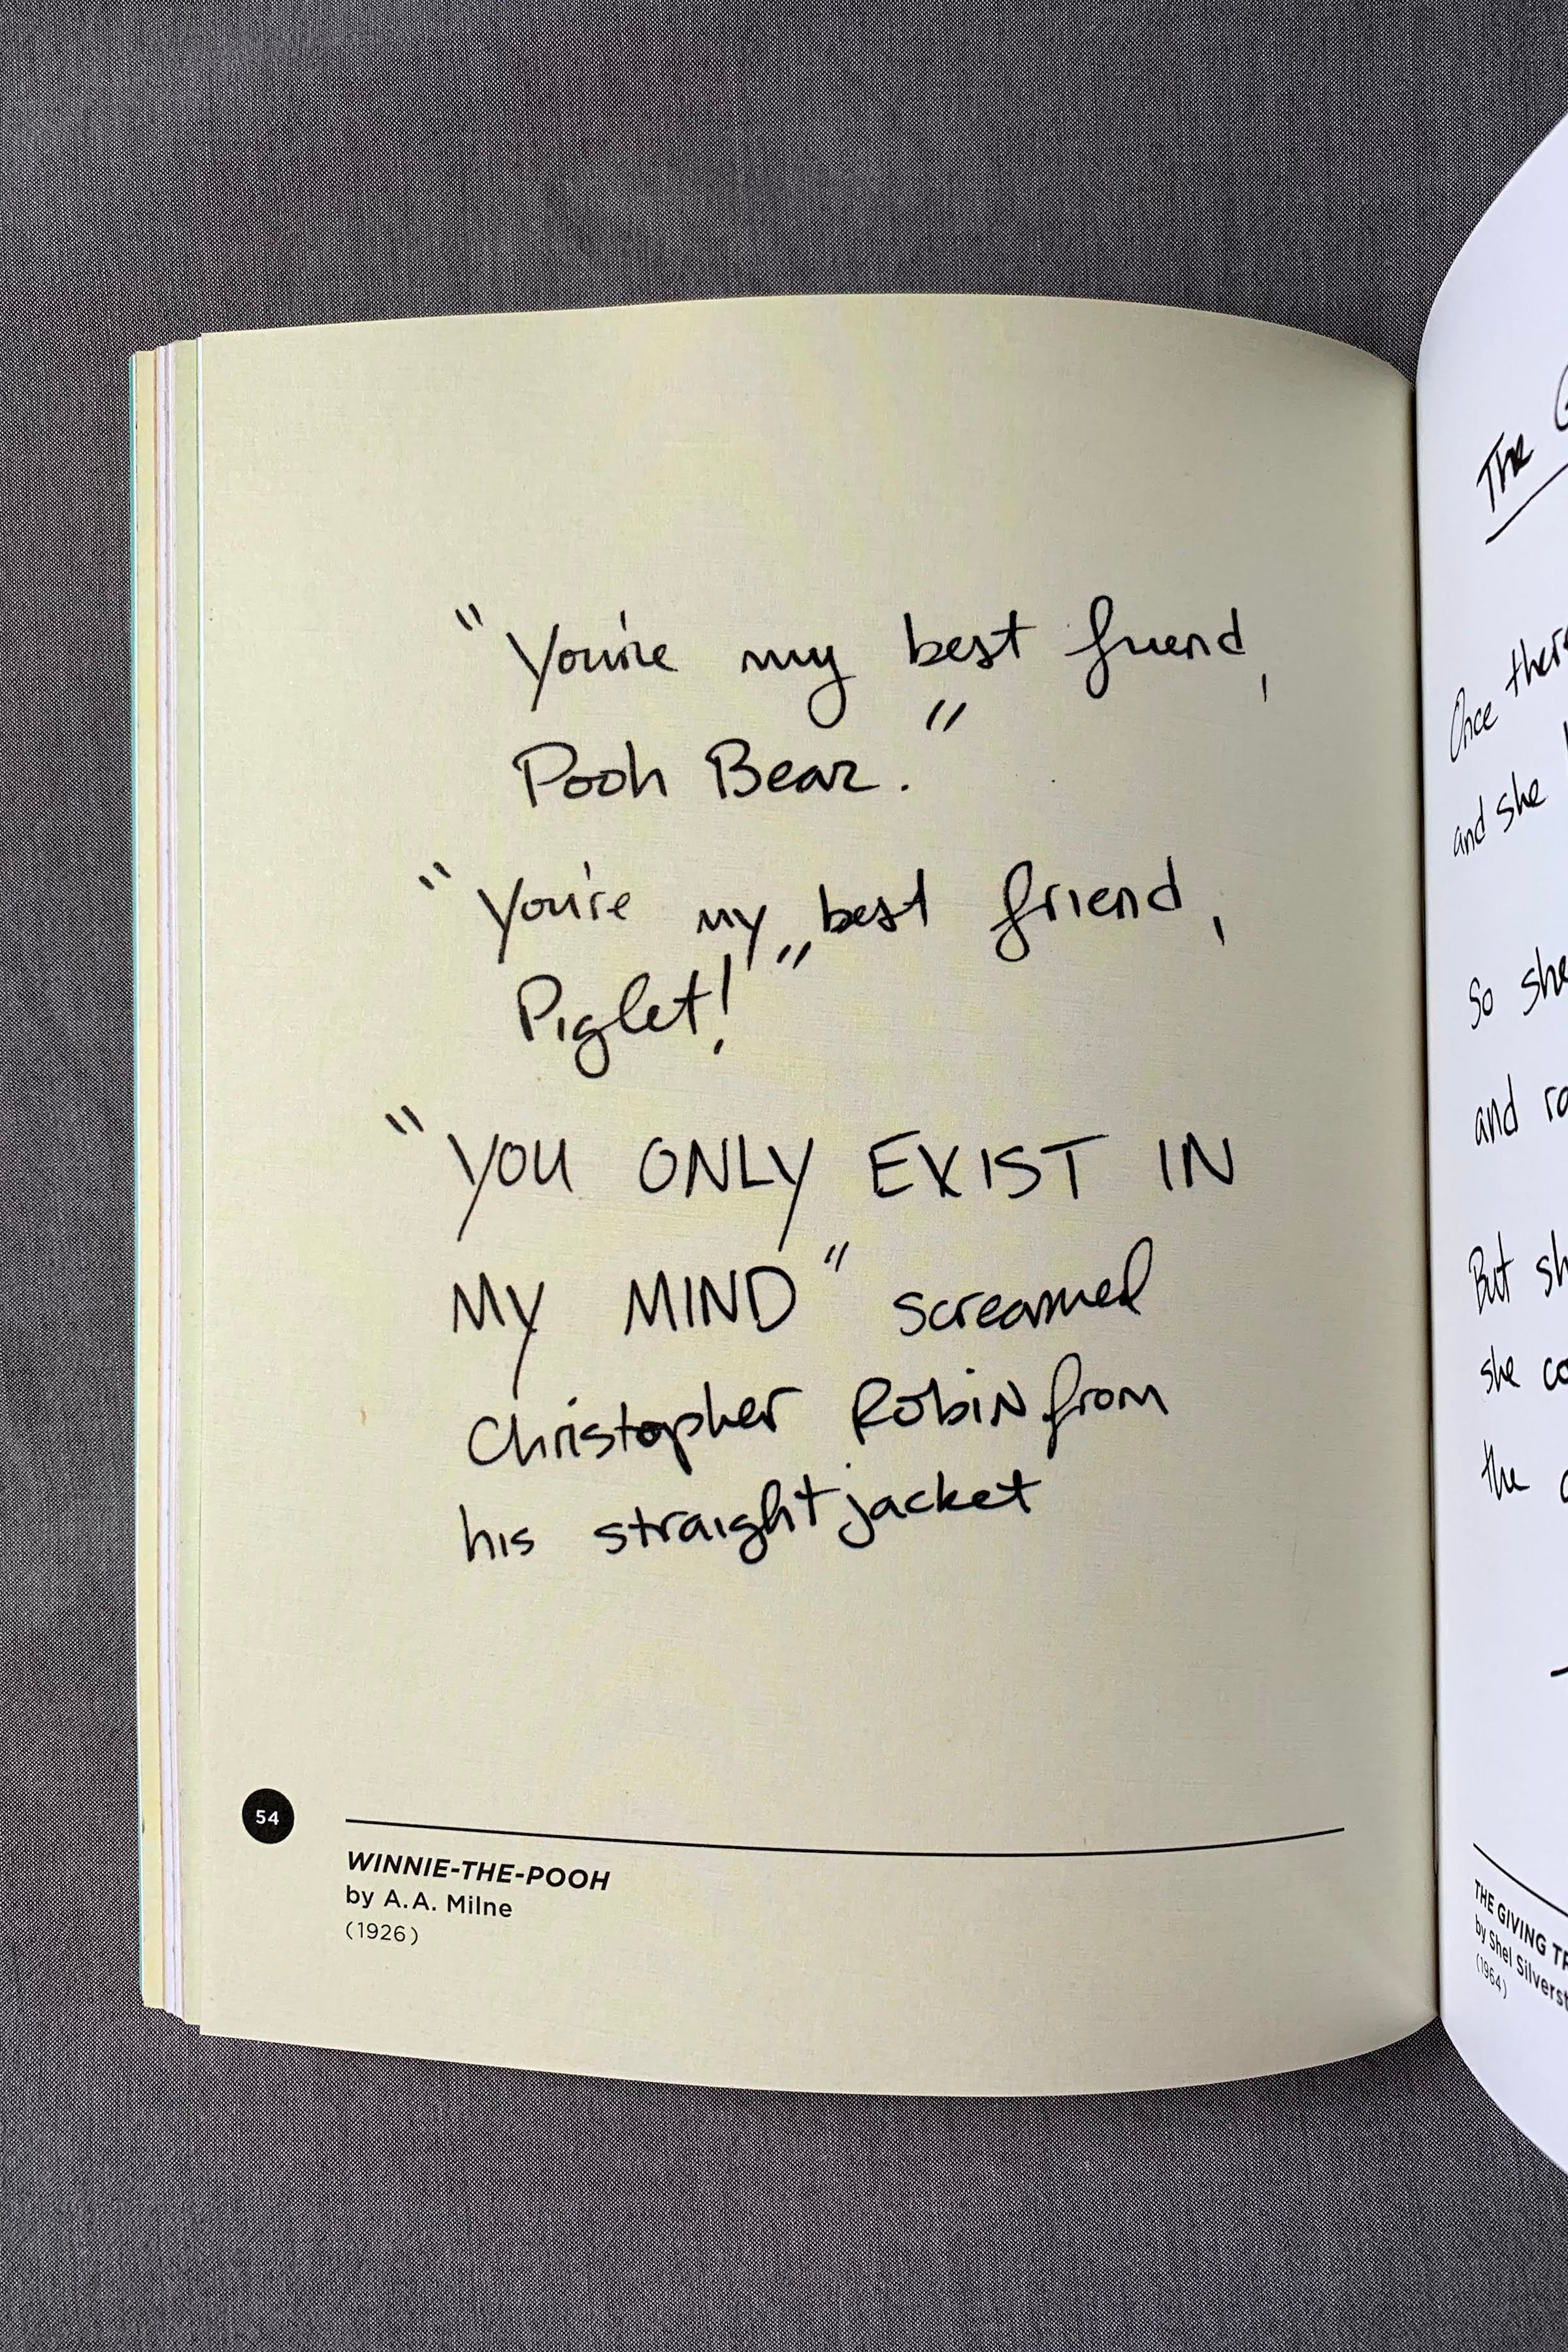 "You're my best friend,
Pooh Bear."
"You're my best friend,
Piglet!"
"YOU ONLY EXIST IN
MY MIND" screamed
Christopher Robin from
his straightjacket
54
WINNIE-THE-POOH
by A.A. Milne
(1926)
The
Once
and she
So she
and
But
she
the
THE GIVING
by Shel
(1964)